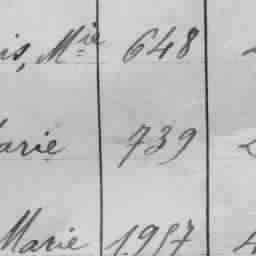 is, Mie 648
arie 739
Marie 1957